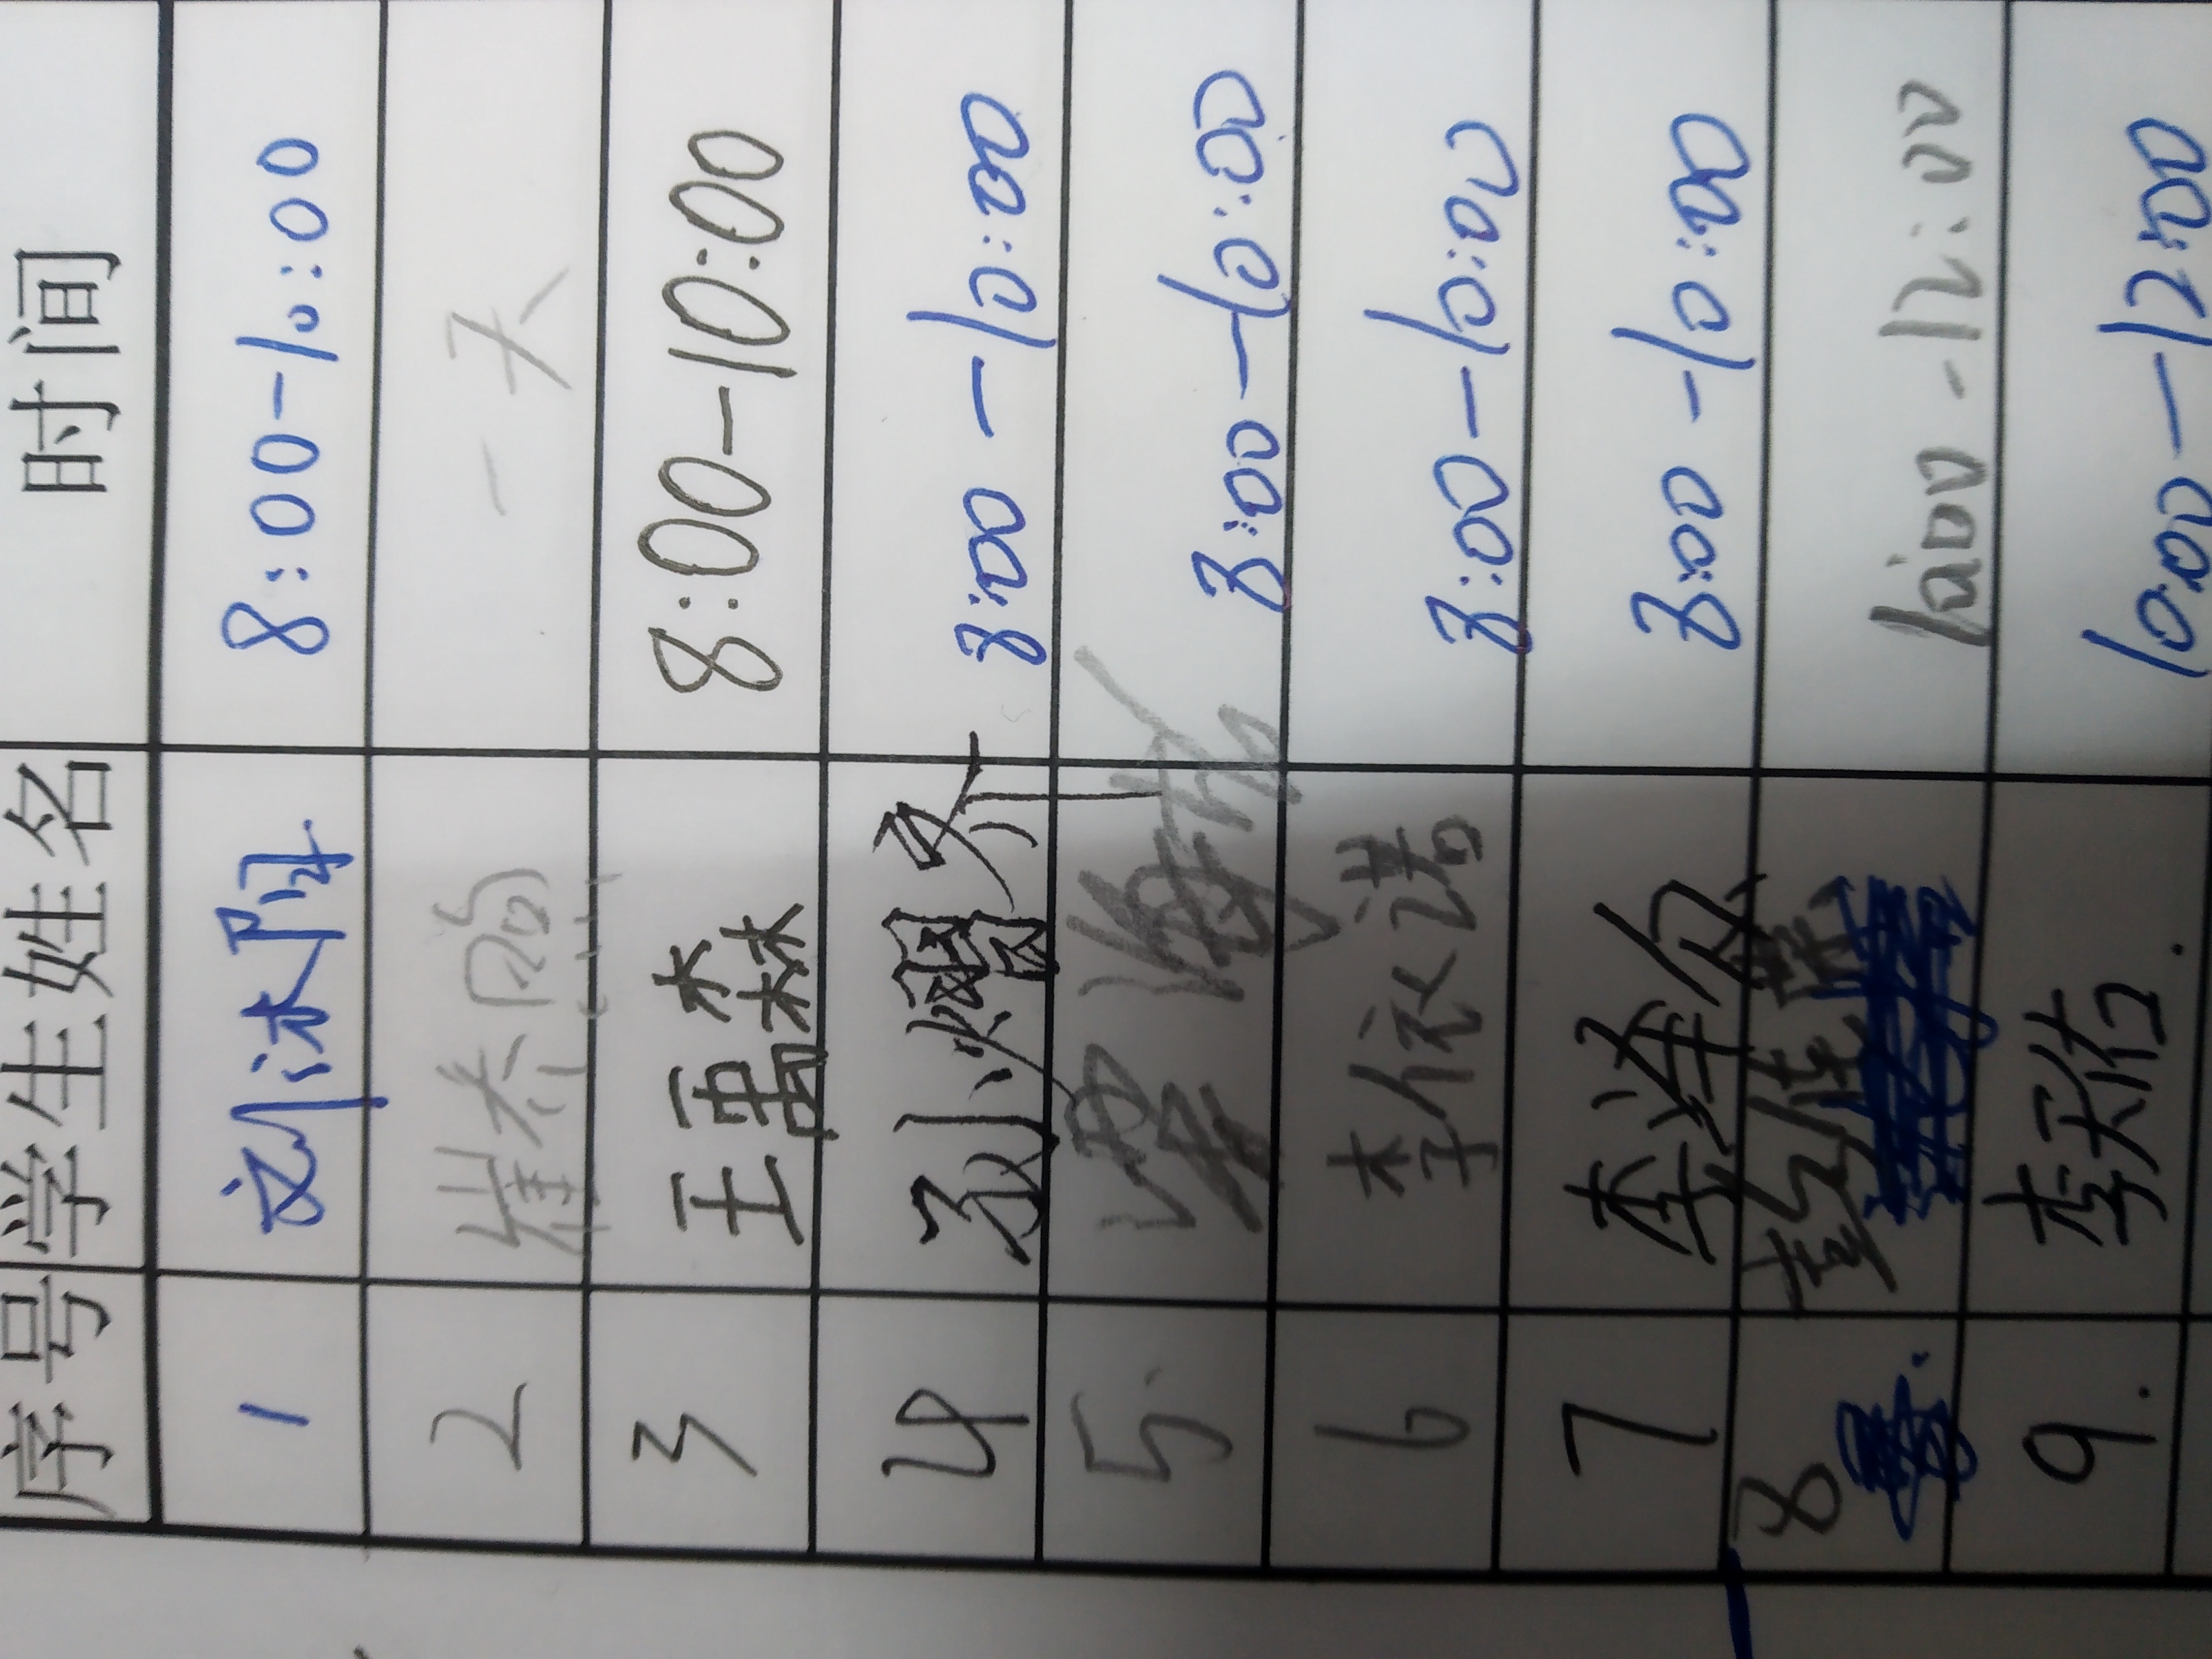 序号 学生姓名 时间
1 刘沐阳 8:00-10:00
2 崔 一天
3 王禹森 8:00-10:00
4 孙 8:00-10:00
5 8:00-10:00
6 李依诺 8:00-10:00
7 李 8:00-10:00
8 彭佳 10:00-12:00
9. 李天佑. 10:00-12:00